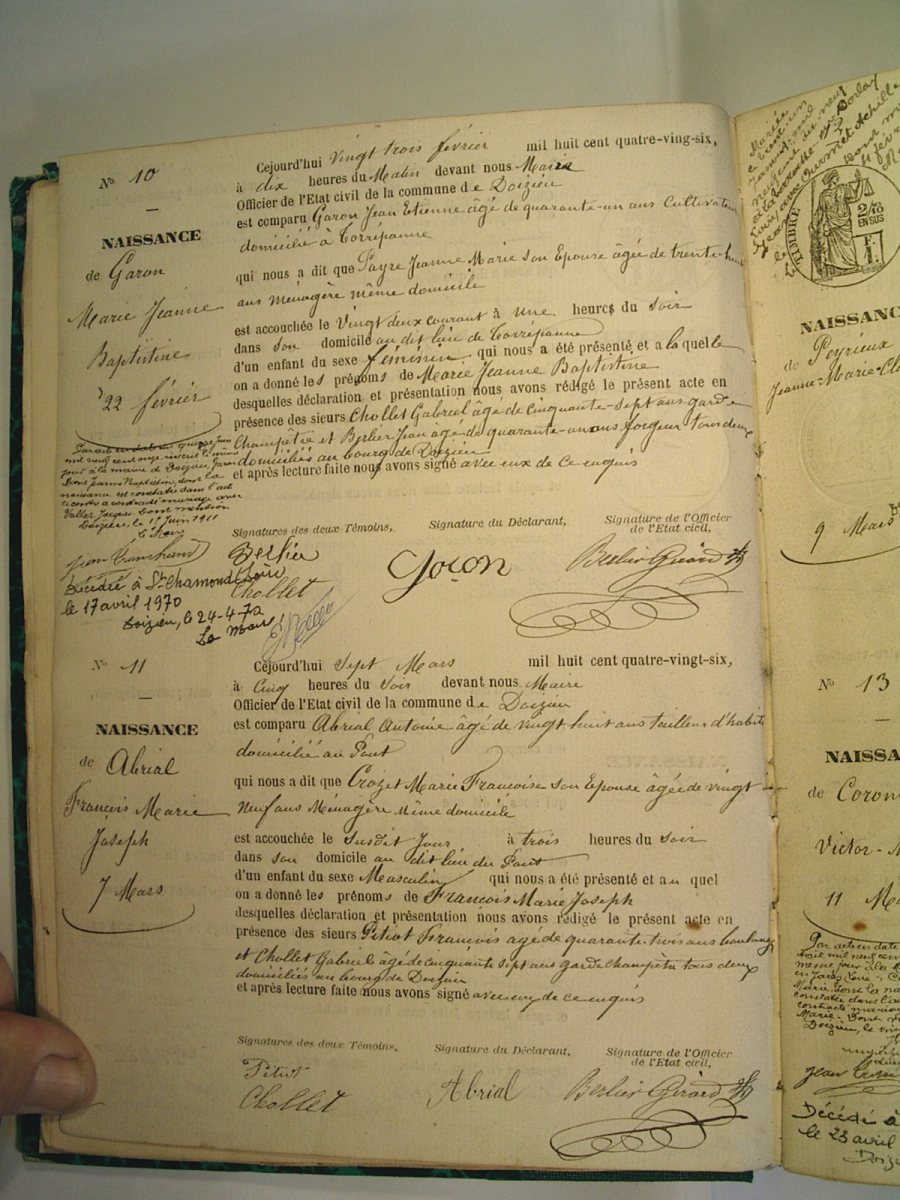 Nº 10
NAISSANCE
de Garon
Marie Jeanne
Baptistine
22 février
Cejourd'hui vingt trois février mil huit cent quatre-ving-six,
à dix heures du Matin devant nous Maire
Officier de l'Etat civil de la commune de Doizieu
est comparu Garon Jean Etienne âgé de quarante-un ans Cultivateur
domicilié à Torrépanne
qui nous a dit que Payre Jeanne Marie son Epouse âgée de trente-huit
ans Ménagère même domicile
est accouchée le Vingt deux courant à Une heures du Soir
dans son domicile au dit lieu de Torrépanne
d'un enfant du sexe féminin qui nous a été présenté et a la quelle
on a donné les prénoms de Marie Jeanne Baptistine
desquelles déclaration et présentation nous avons rédigé le présent acte en
présence des sieurs Chollet Gabriel âgé de Cinquante-Sept ans garde
Champêtre et Berlier Jean âgé de quarante-un ans forgeur tous deux
domiciliés au bourg de Doizieu
et après lecture faite nous avons signé avec eux de ce enquis
mil neuf cent onze, inscrit le même
jour à la mairie de Doizieu, Garon
Marie Jeanne Baptistine, dont la
naissance est constatée dans l'acte
ci contre a contracté mariage avec
Vallet Jacques. Dont mention
Doizieu, le 15 Juin 1911
Le Maire
Décédée à St-Chamond (Loire)
le 17 avril 1970
Doizieu, le 24-4-70
Le Maire
Signatures des deux Témoins,
Signature du Déclarant,
Signature de l'Officier
de l'Etat civil,
Berlier
Chollet
Goron
Berlier Girard
Nº 11
NAISSANCE
de Abrial
François Marie
Joseph
7 Mars
Cejourd'hui Sept Mars mil huit cent quatre-vingt-six,
à Cinq heures du Soir devant nous Maire
Officier de l'Etat civil de la commune de Doizieu
est comparu Abrial Antoine âgé de vingt huit ans tailleur d'habits
domicilié au Pont
qui nous a dit que Crozet Marie Françoise son Epouse âgée de vingt
Neuf ans Ménagère même domicile
est accouchée le susdit Jour à trois heures du Soir
dans son domicile au dit lieu du Pont
d'un enfant du sexe Masculin qui nous a été présenté et au quel
on a donné les prénoms de François Marie Joseph
desquelles déclaration et présentation nous avons rédigé le présent acte en
présence des sieurs Pitiot François agé de quarante-trois ans boulanger
et Chollet Gabriel âgé de cinquante sept ans garde champêtre tous deux
domiciliés au bourg de Doizieu
et après lecture faite nous avons signé avec eux de ce enquis
Signatures des deux Témoins,
Signature du Déclarant,
Signature de l'Officier
de l'Etat civil,
Pitiot
Chollet
Abrial
Berlier Girard
TIMBRE
2/10
EN SUS
1 F.
NAISSANC
de Peyrieux
Jeanne-Marie-Cl
9 Mars
Nº 13
NAISSA
de Coron
Victor-
11 Ma
Par acte en date
Doizieu, le
Décédé à
le 23 avril
Doizi